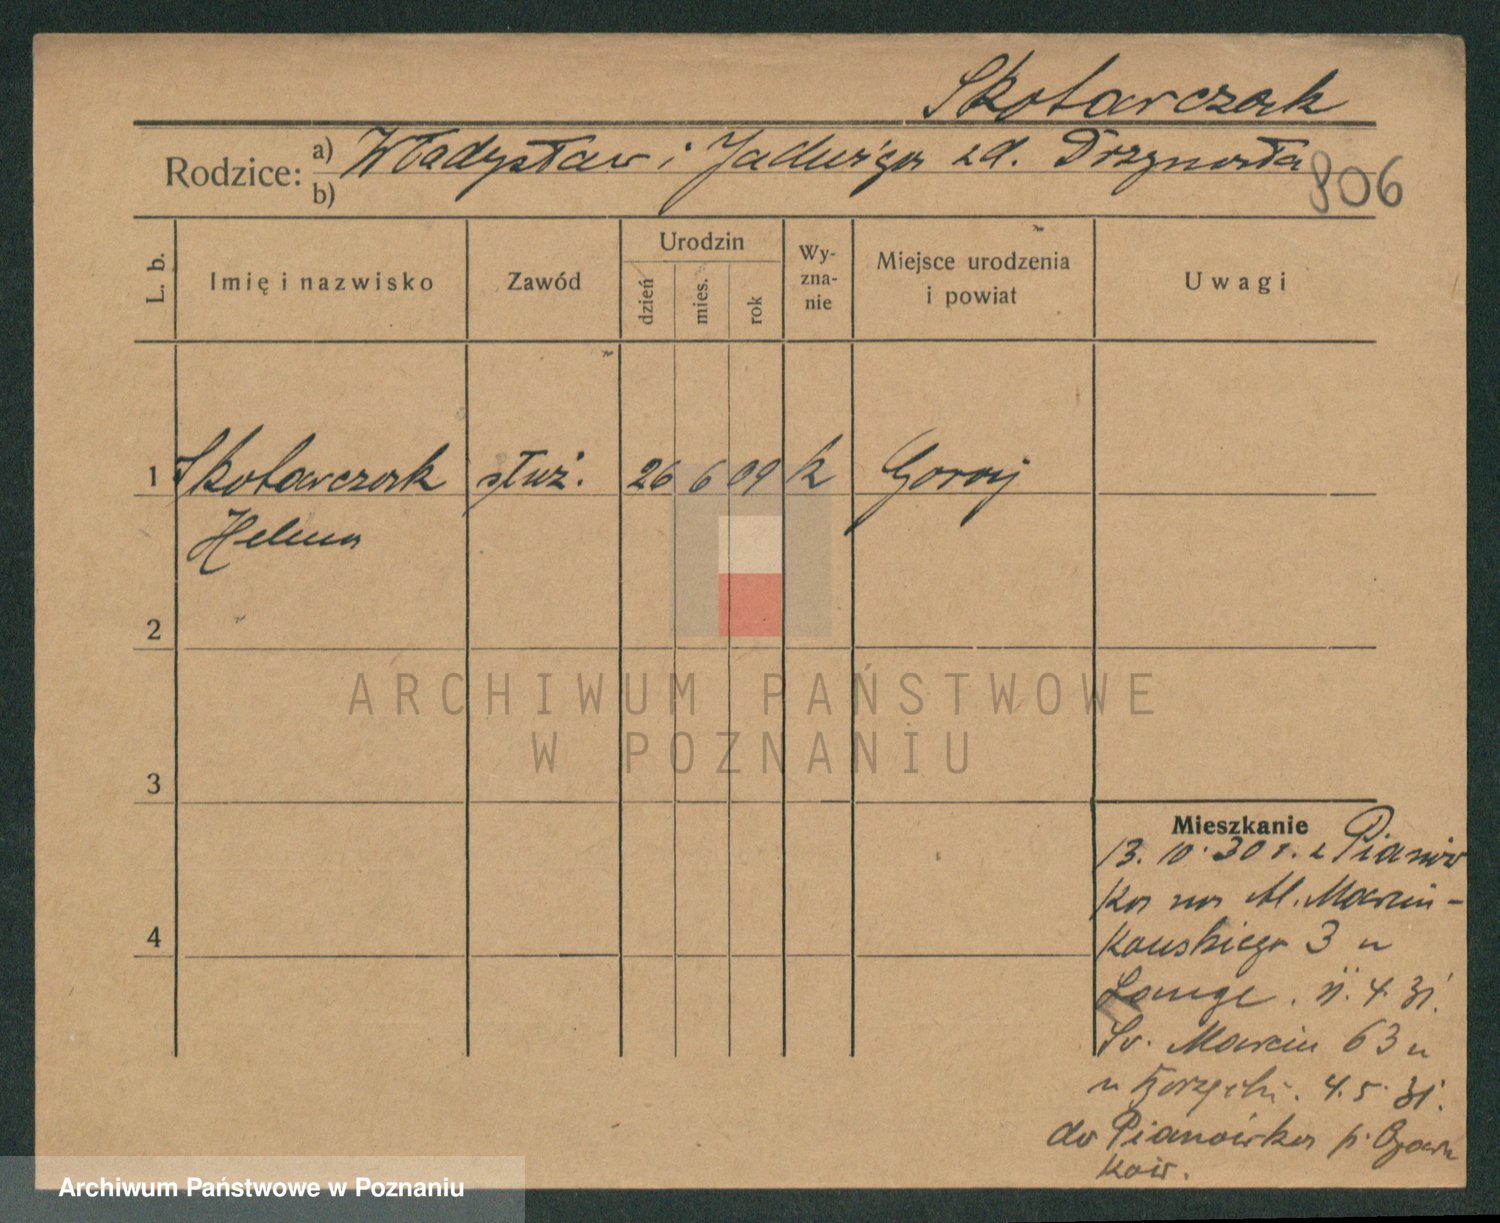 Skotarczak
Rodzice: a) Władysław i Jadwiga zd.
b)
806
L. b.
Imię i nazwisko
Zawód
Urodzin
dzień
mies.
rok
Wy-
zna-
nie
Miejsce urodzenia
i powiat
Uwagi
1 Skotarczak służ. 26 6 09 k Goraj
Helena
2
3
4
ARCHIWUM PAŃSTWOWE
W POZNANIU
Mieszkanie
13. 10. 30 r. z Pianów
ka na Al. Marcin-
kowskiego 3 u
Lange. 11. 4. 31.
Św. Marcin 63 u
u 4. 5. 31.
do Pianówka p.
ków.
Archiwum Państwowe w Poznaniu